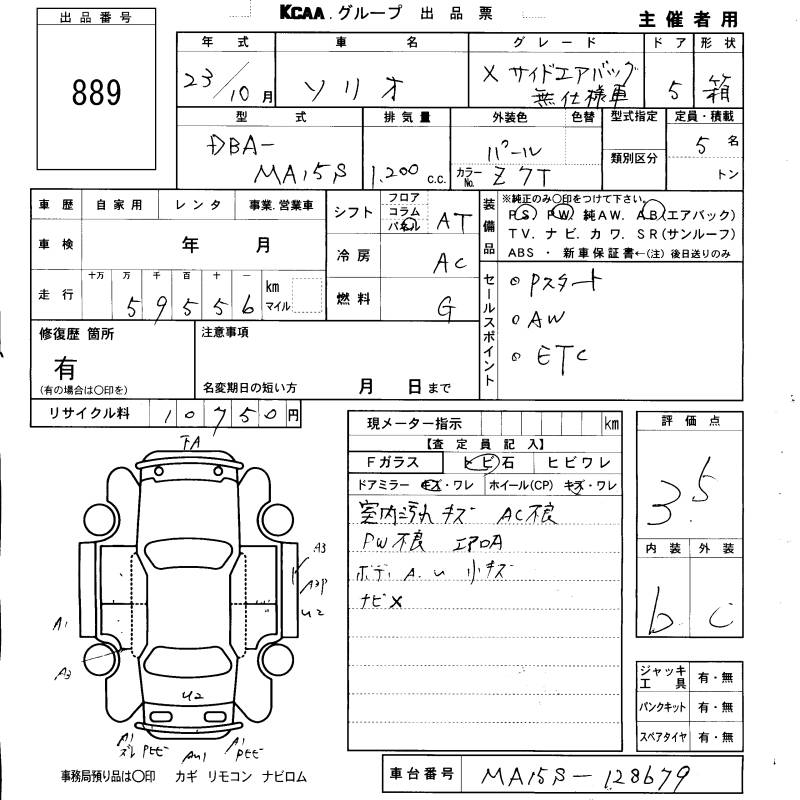 KCAA.グループ 出品票
主催者用
出品番号
889
年式 車名 グレード ドア 形状
23/10月 ソリオ X サイドエアバッグ 5 箱
無仕様車
型式 排気量 外装色 色替 型式指定 定員・積載
DBA- パール 5名
MA15S 1,200c.c. カラーNo. Z7T 類別区分 トン
車歴 自家用 レンタ 事業.営業車
シフト フロア コラム パネル AT
装備品 ※純正のみ〇印をつけて下さい。
PS PW 純AW. AB(エアバック)
TV. ナビ. カワ. SR(サンルーフ)
ABS ・ 新車保証書←(注) 後日送りのみ
車検 年 月
冷房 AC
走行 十万 万 千 百 十 一 km マイル
59556
燃料 G
セールスポイント
Pスタート
AW
ETC
修復歴 箇所 注意事項
有
(有の場合は〇印を) 名変期日の短い方 月 日まで
リサイクル料 10750円
現メーター指示 km
【査定員記入】
Fガラス トビ石 ヒビワレ
ドアミラー キズ・ワレ ホイール(CP) キズ・ワレ
室内汚れ キズ AC不良
PW不良 エアロA
ボディA.U 小キズ
ナビX
評価点
3.5
内装 外装
b c
ジャッキ工具 有・無
パンクキット 有・無
スペアタイヤ 有・無
FA
A3
A3P
U2
A1
A3
U2
A1
ズレ Pモビ
AU1
A1
Pモビ
事務局預り品は〇印 カギ リモコン ナビロム
車台番号 MA15S-128679